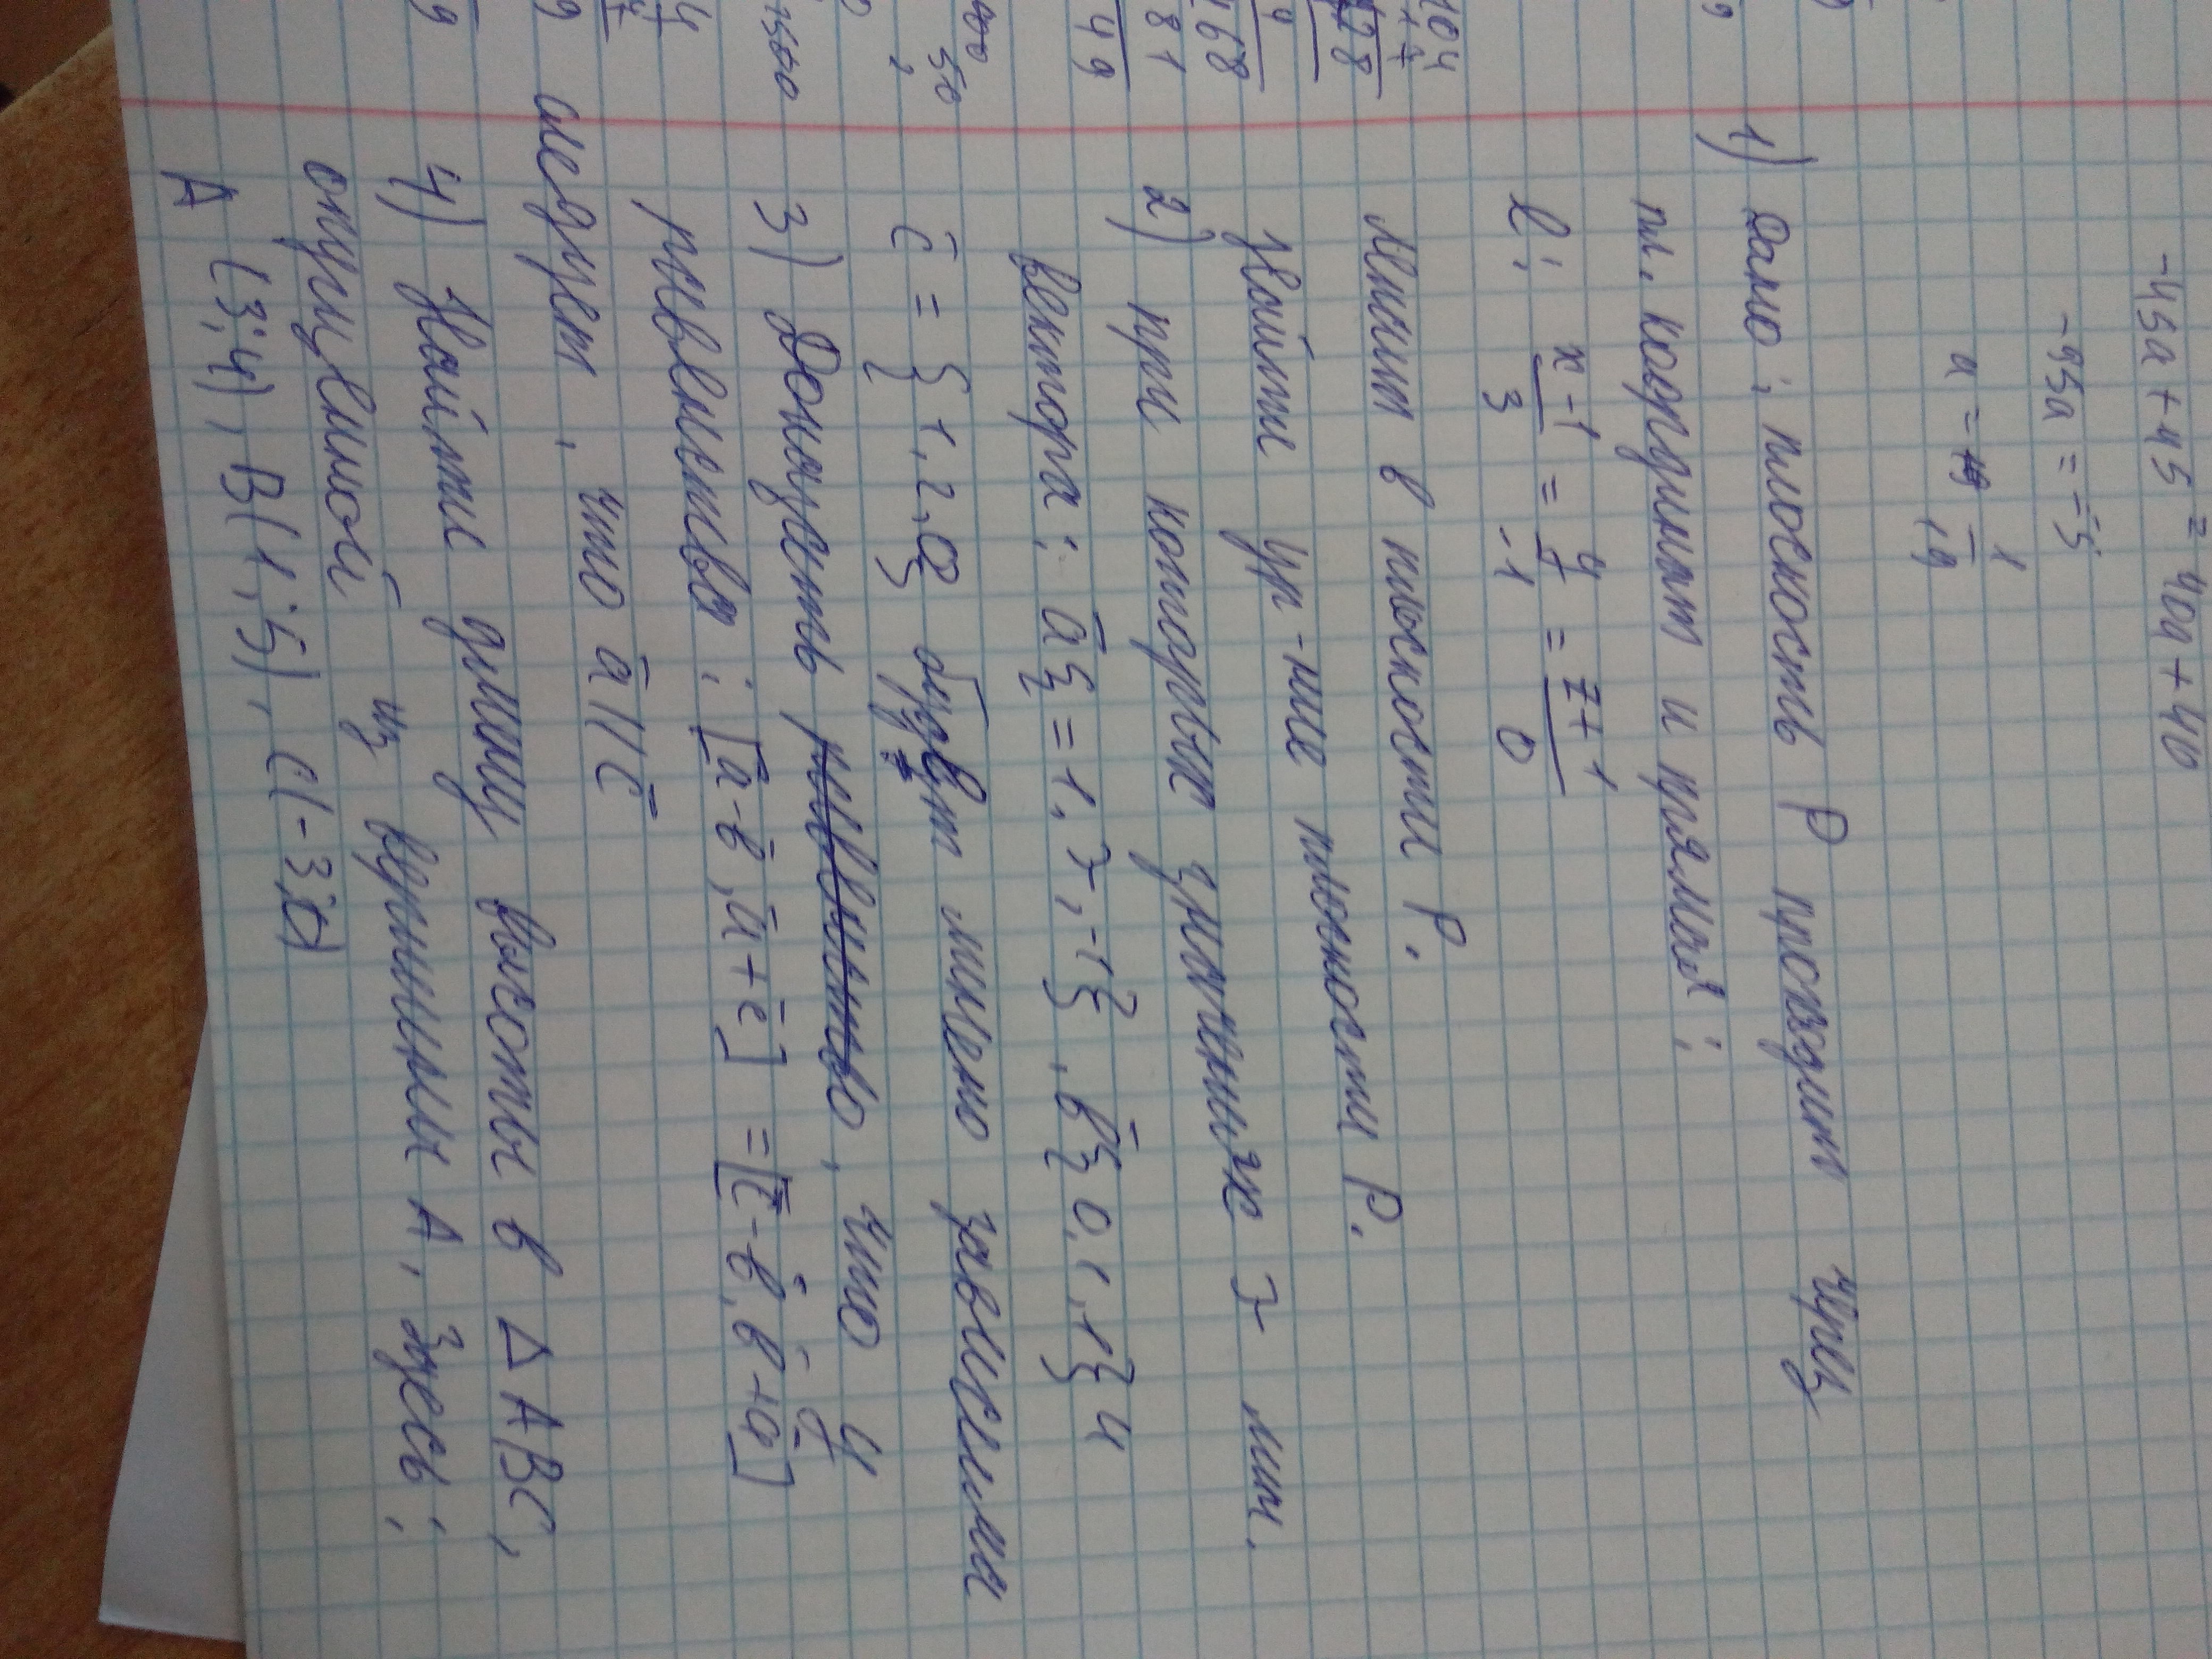 -45a+45=40a+40
-95a=-5
a= 1/19
1) Дано: плоскость P проходит через
т. координат и прямая:
l: x-1/3 = y/-1 = z+1/0
Лежит в плоскости P.
Найти ур-ние плоскости P.
2) при которых значениях λ лин.
вектора: ā{=1, λ, -1}, b̄{0, 1, 1} и
c̄={1,2,0} будут линено зависимы
3) Доказать равенство, что из
равенства: [ā-b̄, ā+c̄] =[c̄-b̄, b̄+a]
следует, что ā||c̄
4) Найти длину высоты в Δ ABC,
опущенной из вершины A, Здесь:
A (3;4), B(1;5), C(-3;0)
104
28
468
81
49
50